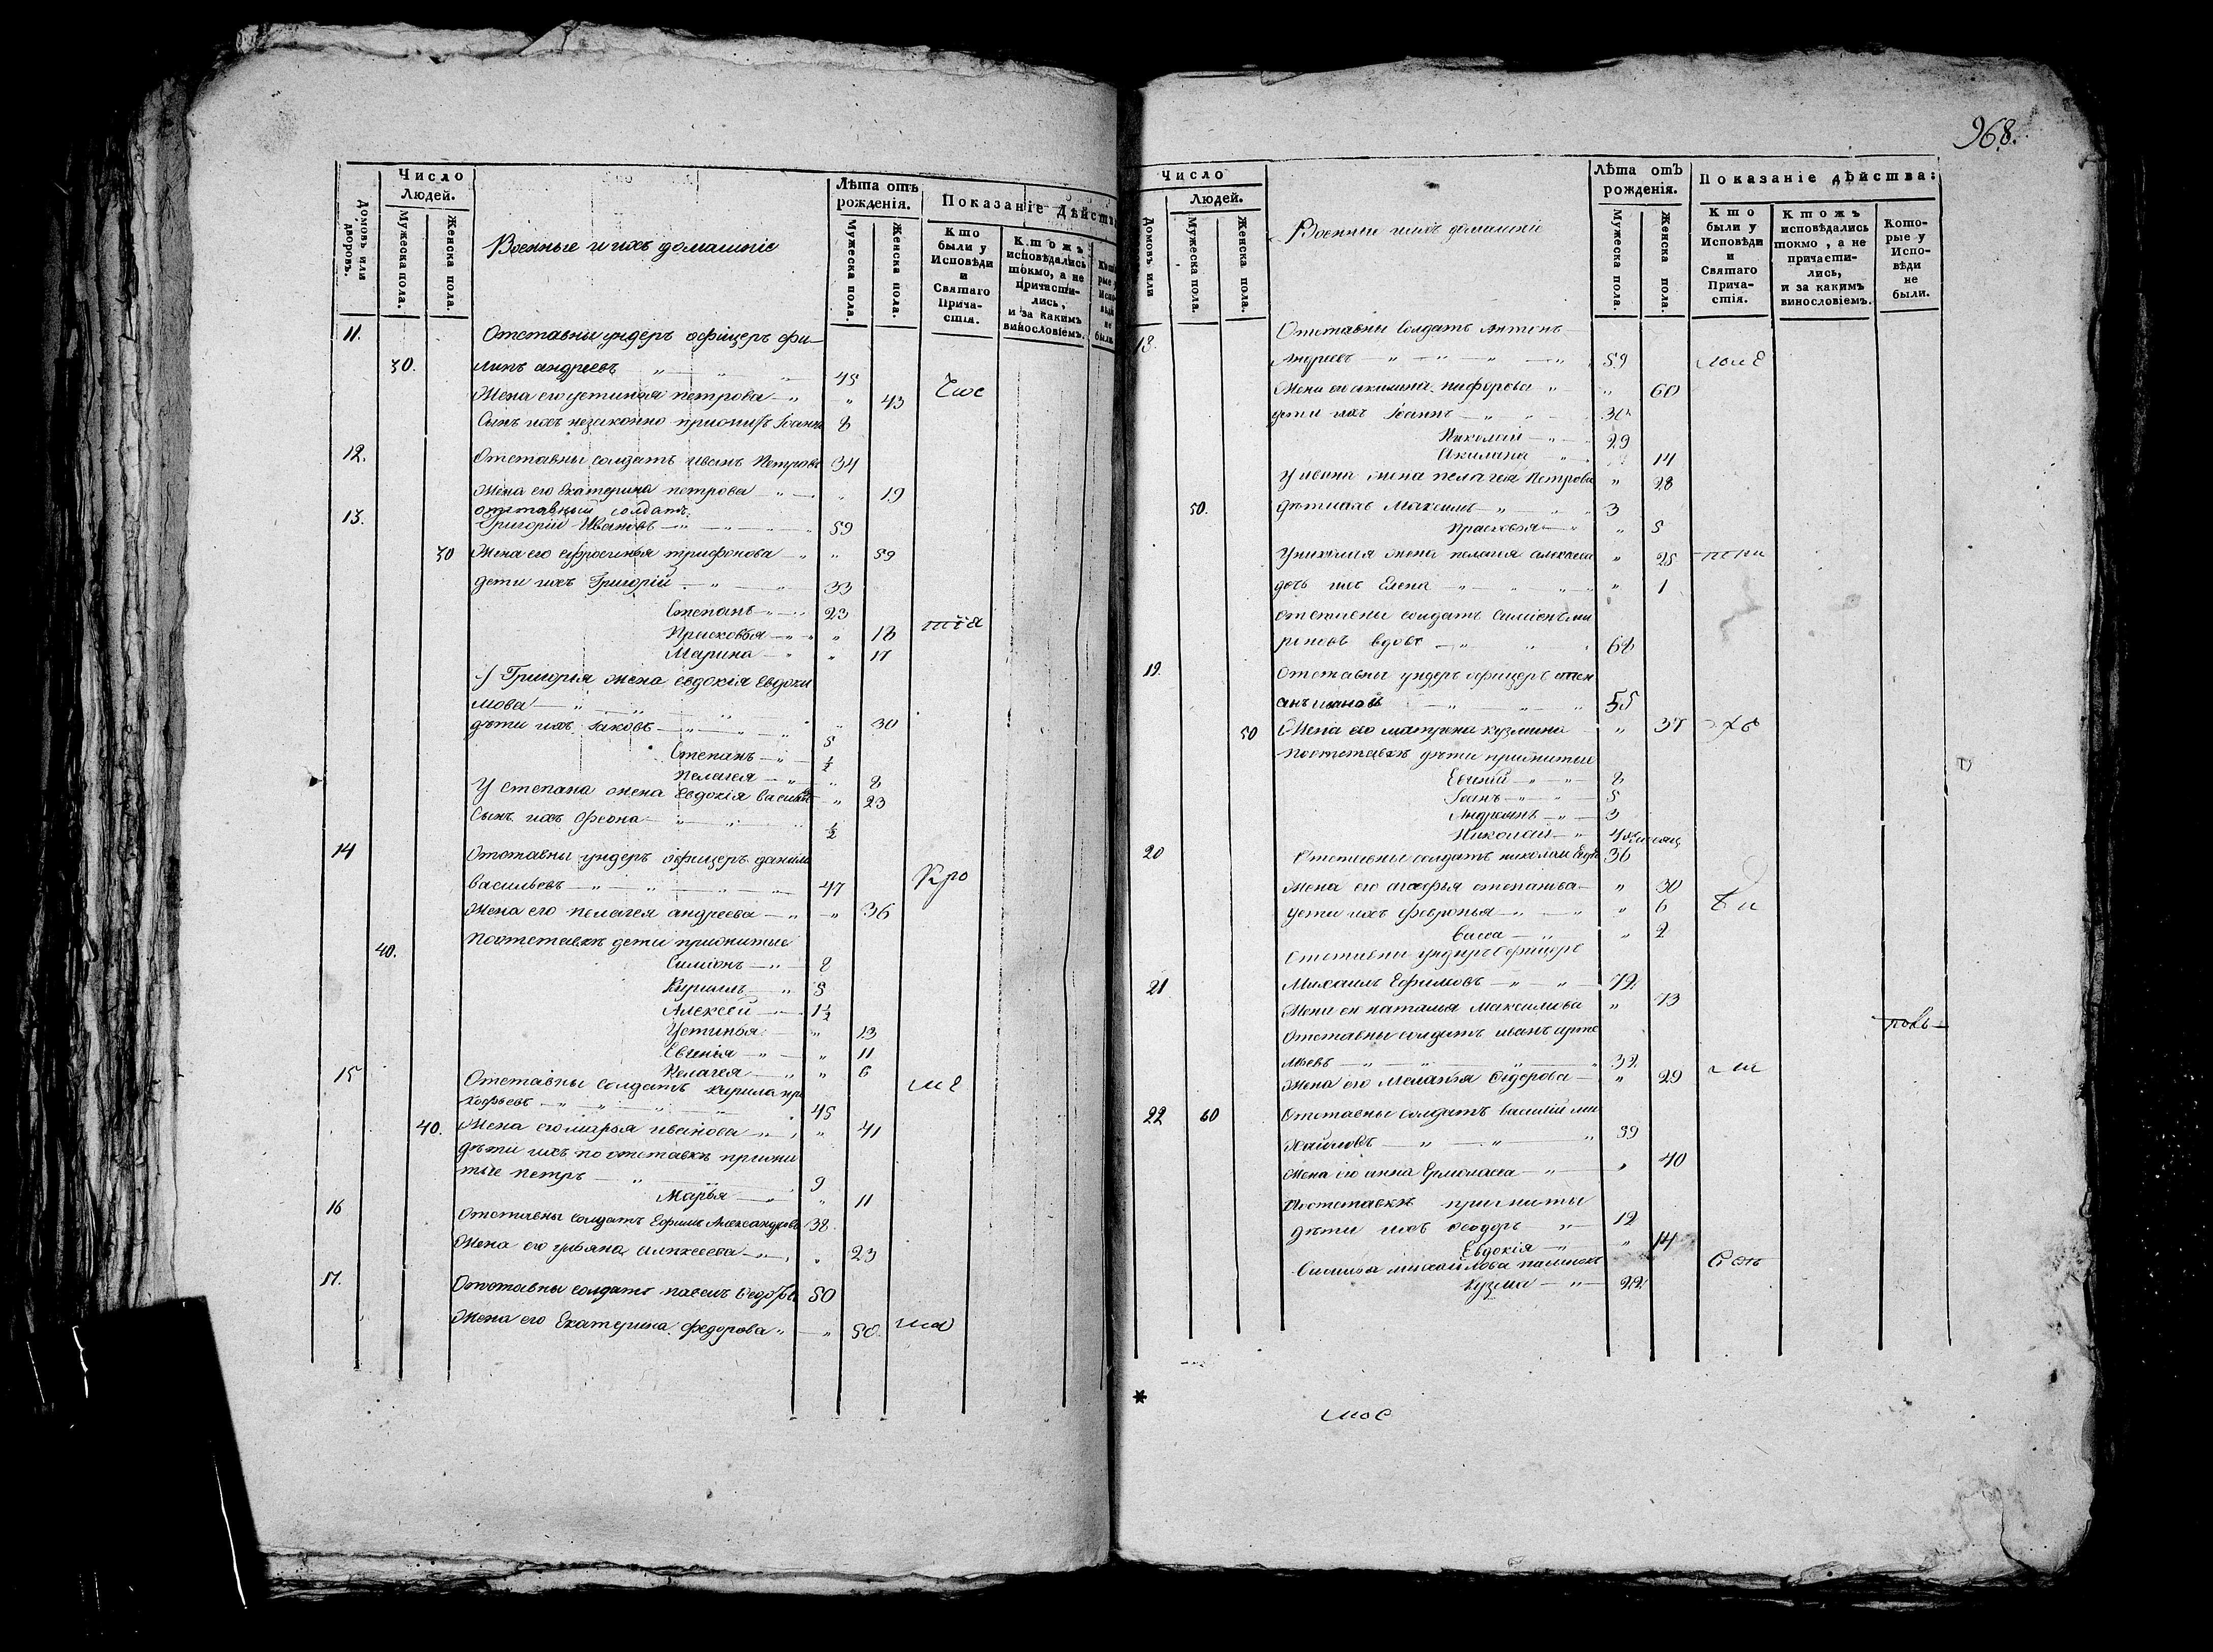 Число
Людей.
Домовъ или дворовъ.
Мужеска пола.
Женска пола.
Военные и ихъ домашніе
Лѣта отъ рожденія.
Мужеска пола.
Женска пола.
Показаніе дѣйств
Кто были у Исповѣди и Святаго Причастія.
Ктожъ исповѣдались токмо, а не причастились, и за какимъ винословіемъ.
11. Отставны ундеръ офіцеръ фи-
30. липъ андреевъ 45
Жена его устиная петрова 43
Сынъ ихъ незаконно прижитъ Іоаннъ 8
12. Отставны солдатъ иванъ Петровъ 34
Жена его Екатерина петрова 19
отставный солдатъ
13. Григорій Ивановъ 59
30 Жена его ефросинья трифонова 59
дети ихъ Григорій 33
Степанъ 23
Прасковья 18
Марина 17
У Григорія жена евдокія Евдоки
мова 30
дѣти ихъ Іаковъ 5
Степанъ ½
Пелагея 8
У степана жена Евдокія васильев 23
Сынъ ихъ Феона ½
14 Отставны ундеръ офицеръ данила
васильевъ 47
Жена его пелагея андреева 36
40. Поотставкѣ дети прижитые
Симіонъ 8
Кирилъ 5
Алексей 1½
Устинья 13
Евгенія 11
Пелагея 6
15 Отставны солдатъ Кирила про
кофьевъ 45
40. Жена его марья иванова 41
дѣти ихъ по отставкѣ прижи
тые петръ 9
Марья 11
16 Отставны солдатъ Ефимъ Александровъ 38
Жена его ульяна алексеева 23
17. Отставны солдатъ павелъ Федоровъ 50
Жена его Екатерина федорова 50
968.
Число
Людей.
Домовъ или
Мужеска пола.
Женска пола.
Военные и ихъ домашніе
Лѣта отъ рожденія.
Мужеска пола.
Женска пола.
Показаніе дѣйства:
Кто были у Исповѣди и Святаго Причастія.
Ктожъ исповѣдались токмо, а не причастились, и за какимъ винословіемъ.
Которые у Исповѣди не были.
18. Отставны Солдатъ Антонъ
Андреевъ 59
Жена его акилина никифорова 60
дети ихъ Іоаннъ
Николай 29
Акилина 14
У ивана жена пелагея Петрова 28
50. дѣти ихъ Максимъ 3
Прасковья 5
У николая жена пелагея 25
дочь ихъ Елена 1
отставны солдатъ Симіонъ
вдовъ 68
19. Отставны ундеръ офицеръ степ
анъ ивановъ 55
50 Жена его матрена кузмина 37
Поотставкѣ дѣти прижитые
Евгеній 8
Іоанъ 5
Андреянъ 3
Николай 4 месяц
20 Отставны солдатъ николай 36
Жена его агафья степанова 30
дети ихъ февронья 6
васса 2
Отставны ундеръ офицеръ
21 Михаилъ Ефимовъ 72
Жена ег наталья Максимова 73
Отставны солдатъ иванъ арте
мьевъ 32
Жена его Меланья Сидорова 29
22 60 Отставны солдатъ василій ми
хайловъ 39
Жена его анна Ермолаева 40
Поотставкѣ прижиты
дѣти ихъ Феодоръ 12
Евдокія 14
михайлова
Кузма 22